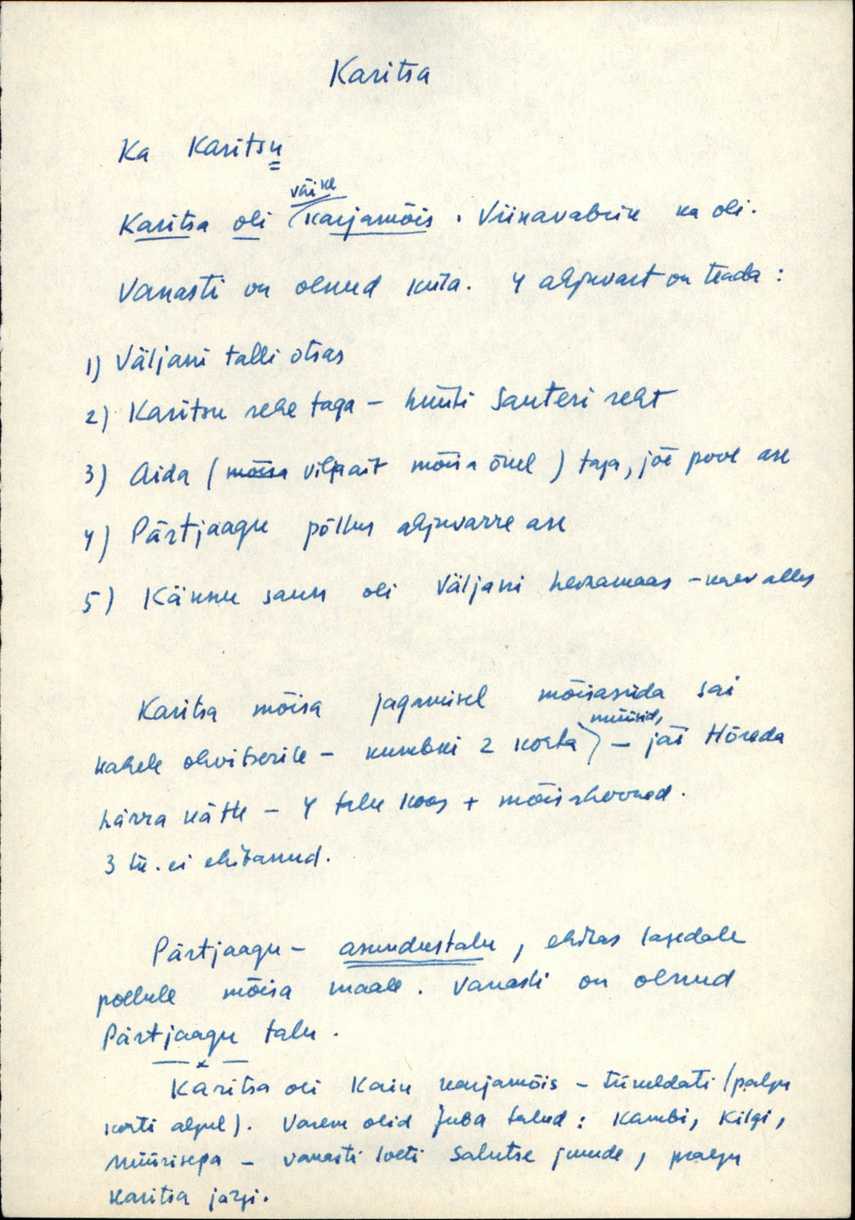 Karitsa
Ka Karitsu
väike
Karitsa oli karjamõis. Viinavabrik ka oli.
Vanasti on olnud küla. 4 ahjuvart on teada:
1) Väljani talli otsas
2) Karitsu rehe taga – hüüti Santeri reht
3) Aida (mõisa viljaait mõisa õuel) taga, jõe pool ase
4) Pärtjaagu põllus ahjuvarre ase
5) Kännu saun oli Väljani heinamaas – kaev alles
Karitsa mõisa jagamisel mõisasüda sai
müüsid,
kahele ohvitserile – kumbki 2 kohta – jäi Hõreda
härra kätte – 4 talu koos + mõisahooned.
3 tk. ei ehitanud.
Pärtjaagu – asundustalu, ehitas lagedale
põllule mõisa maale. Vanasti on olnud
Pärtjaagu talu.
— x —
Karitsa oli Kaiu karjamõis – tükeldati (palju
korti algul). Varem olid juba talud: Kambi, Kilgi,
Müürisepa – vanasti loeti Salutse juurde, praegu
Karitsa järgi.